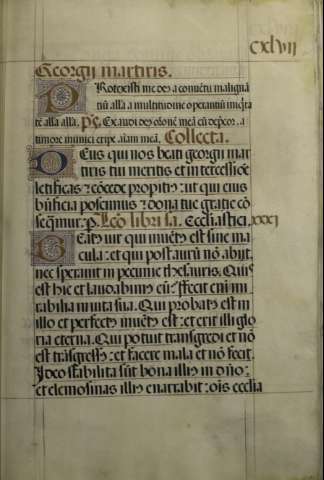 cxlvii
Georgii martiris.
Protexisti me deꝰ a conuētu maligná
tiū alla a multitudine operantiū iniq̄ta
tē alla alla. pṡ. Exaudi deꝰ oŕonē meā cū deṕcor : a
timore inimici eripe aīam meā. Collecta.
Deus qui nos beati georgii mar
tiris tui meritis et intercessiōe
letificas ⁊ cōcede propitiꝰ : ut qui eius
bn̄ficia poscimus ⁊ dona tue gratie cō
seq̄mur. ꝑ. Lc̄o libri sa. Ecclīastici. xxxi
Beatꝰ uir qui inuētꝰ est sine ma
cula : et qui post aurū nō abiit
nec sperauit in pecunie thesauris. Quis
est hic et laudabimꝰ eū : fecit eni mi
rabilia in uita sua. Qui probatꝰ est in
illo et perfectꝰ inuētꝰ est : et erit illi glo
ria eterna. Qui potuit transgredi et nō
est trāsgressꝰ : et facere mala et nō fecit.
Ideo stabilita sūt bona illiꝰ in dn̄o :
et elemosinas illiꝰ enarrabit : oīs ecclīa